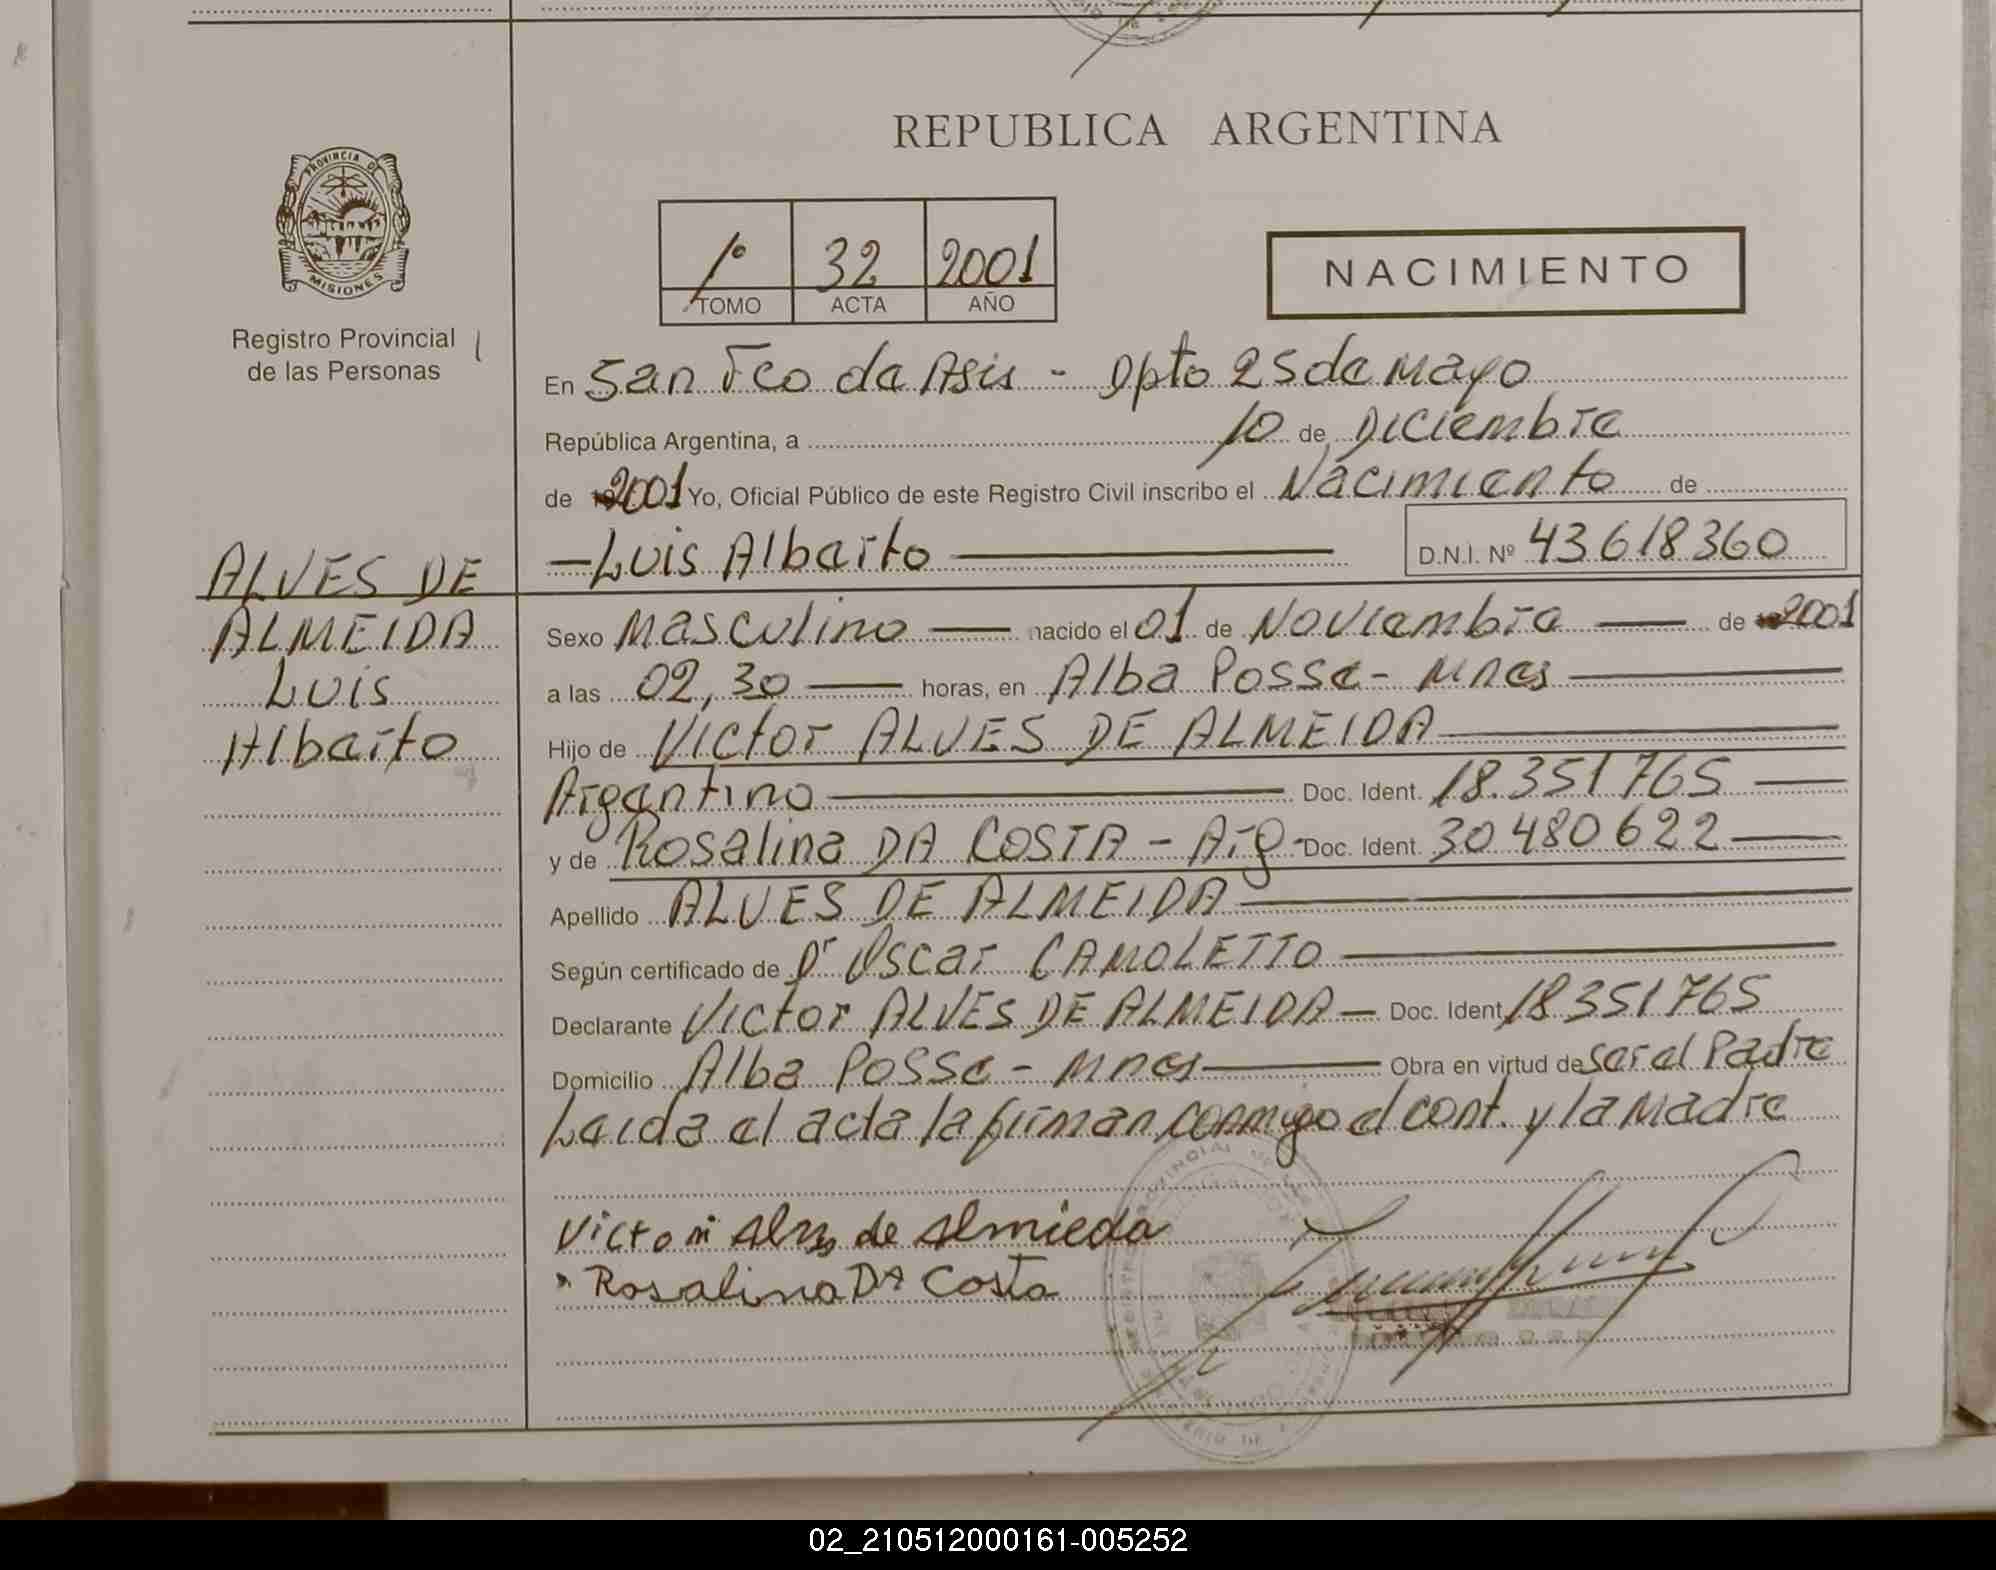 REPUBLICA ARGENTINA
PROVINCIA DE
MISIONES
Registro Provincial
de las Personas
1º 32 2001
TOMO ACTA AÑO
NACIMIENTO
En San Fco de Asis - Dpto 25 de Mayo
República Argentina, a 10 de Diciembre
de 2001 Yo, Oficial Público de este Registro Civil inscribo el Nacimiento de
— Luis Alberto — D.N.I. Nº 43618360
ALVES DE
ALMEIDA
Luis
Alberto
Sexo Masculino — nacido el 01 de Noviembre — de 2001
a las 02,30 — horas, en Alba Posse - Mnes —
Hijo de Victor ALVES DE ALMEIDA —
Argentino — Doc. Ident. 18.351765 —
y de Rosalina DA COSTA - Arg - Doc. Ident. 30480622 —
Apellido ALVES DE ALMEIDA —
Según certificado de Dr Oscar CAMOLETTO —
Declarante Victor ALVES DE ALMEIDA — Doc. Ident 18351765
Domicilio Alba Posse - Mnes — Obra en virtud de ser el Padre
Leida el acta la firman conmigo el cont. y la Madre
Victor Alves de Almieda
Rosalina DA Costa
02_210512000161-005252